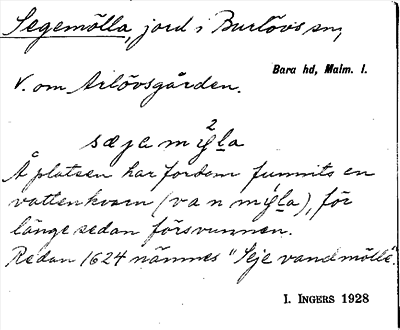 Segemölla, jord i Burlövs sn,
Bara hd, Malm. l.
V. om Arlövsgården.
sæjemy̋la
Å platsen har fordom funnits en
vattenkvarn (vanmýla), för
länge sedan försvunnen.
Redan 1624 nämnes "Seje vandmölle".
I. INGERS 1928